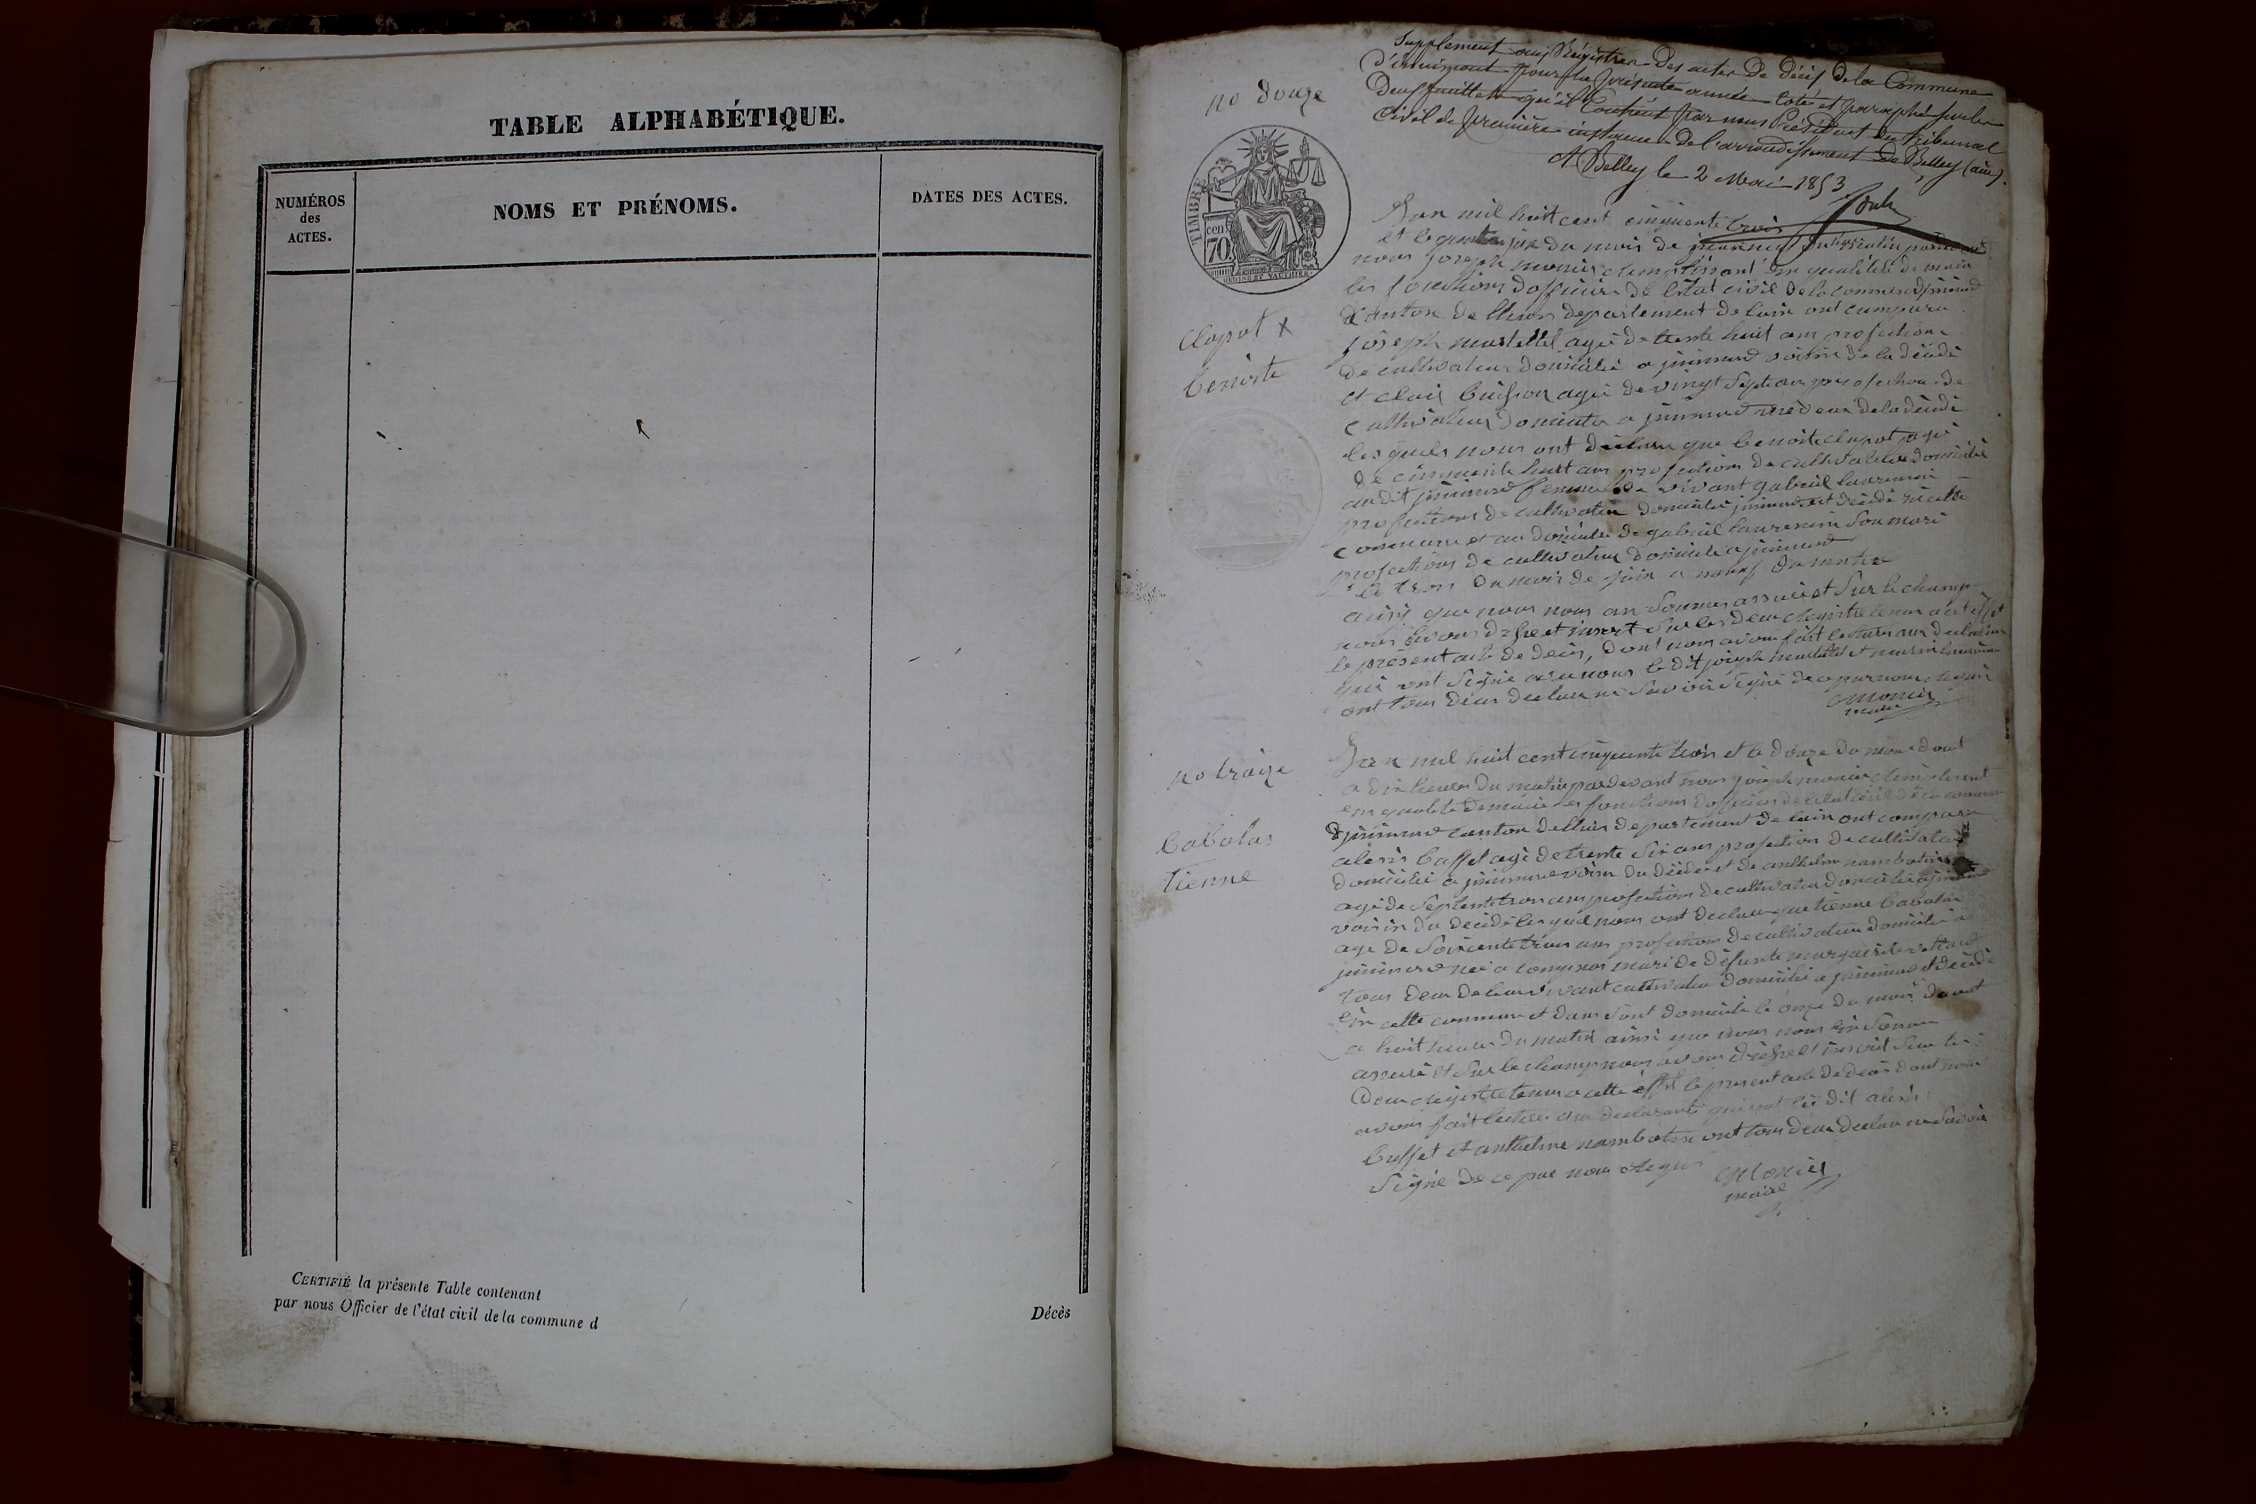 TABLE ALPHABÉTIQUE.
NUMÉROS
des
ACTES.
NOMS ET PRÉNOMS.
DATES DES ACTES.
CERTIFIÉ la présente Table contenant
par nous Officier de l'état civil de la commune d
Décès
Supplement aux Régistres des actes de décès de la Commune
d'innimont pour la présente année coté et paraphé sur les
deux feuillets qu'il contient par nous Président du tribunal
civil de première instance de l'arrondissement de Belley (ain).
A Belley le 2 Mai 1853
no douze
TIMBRE
cen
70.
clapot x
benoite
l'an mil huit cent cinquante trois
et le du mois de du matin pardevant
nous joseph monier remplissant en qualité de maire
les fonctions d'officier de l'état civil de la commune
canton de lhuis departement de lain ont comparu
joseph agé de trente huit ans profection
de cultivateur domicilié a voisin de la décédé
et clair buisson agé de vingt sept ans profection de
cultivateur domicilié a neveux de la décédé
lesquels nous ont déclaré que benoite clapot agé
de cinquante huit ans profections de cultivateur domicilié
audit femme de vivant gabriel
profections de cultivateur domicilié est décédé en cette
commune et au domicile de gabriel son mari
profections de cultivateur domicilié a
le trois du mois de juin a neuf du matin
ainsi que nous nous an sommes assuré et sur le champ
nous avons dressé et inscrit sur les deux registre tenus a cet effet
le présent acte de décès, dont nous avons fait lecture aux declarant
qui ont signé avec nous le dit joseph et
ont tous deux declaré ne savoir signé de ce par nous requis
Monier
maire
no traize
babolas
tienne
l'an mil huit cent cinquante trois et le douze du mois dout
a dix heures du matin pardevant nous joseph monier remplissant
en qualité de maire les fonctions d'officier de l'état civil de la commune
canton de lhuis departement de lain ont comparu
alexis buffet agé de trente six ans profection de cultivateur
domicilié a voisin du décédé et de anthelme
agé de septente trois ans profections de cultivateur domicilié a
voisin du décédé lesquel nous ont declaré que tienne babolas
agé de soixcente trois ans profection de cultivateur domicilié a
né a mari de défunte marguerite
tous deux de leur vivant cultivateur domicilié a est décédé
en cette commune et dans sont domicile le onze du mois dout
a huit heures du matin ainsi que nous nous en somme
assuré et sur le champ nous avons dressé et inscrit sur les
deux registre tenus a cette effet le present acte de décès dont nous
avons fait lecture aux declarants qui ont les dit alexis
buffet et anthelme ont tous deux declaré ne savoir
signé de ce par nous requis
Monier
maire